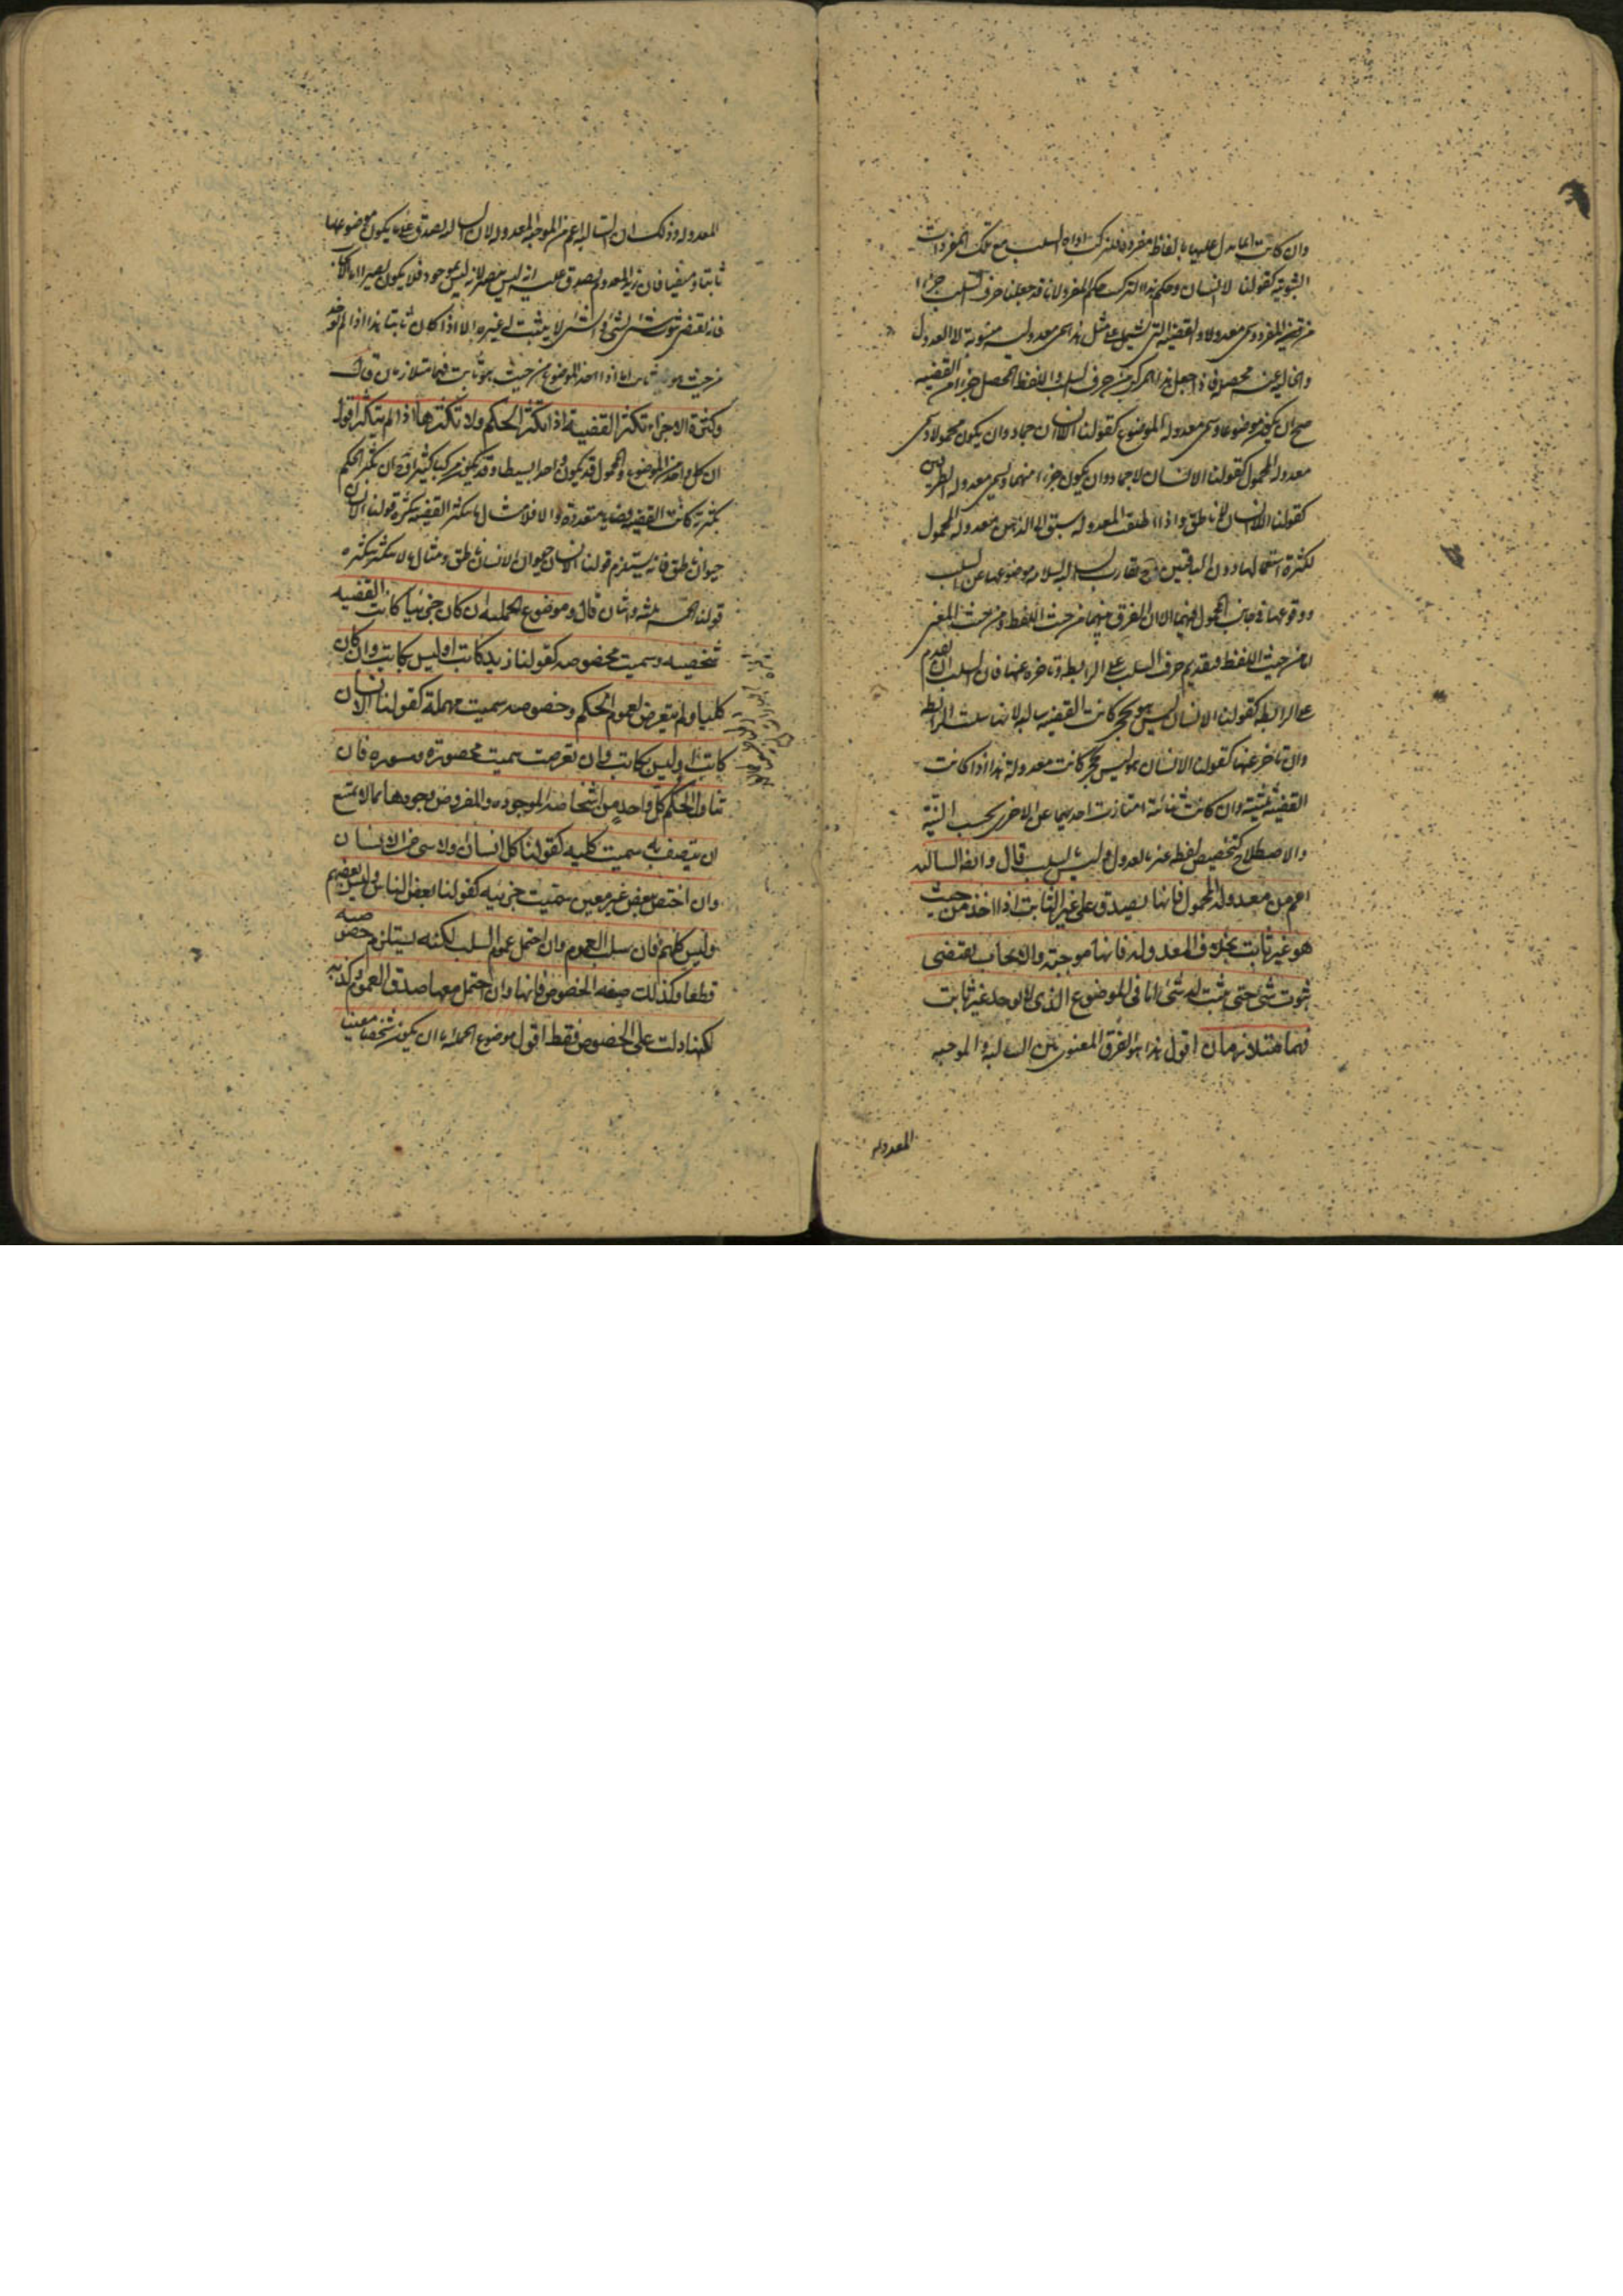 وان كانت انما يدل عليها بالفاظ مفردة فلتركب اداة السلب مع تلك المفردات
الثبوتية كقولنا لا انسان وحكم هذا التركيب حكم المفرد لانا قد جعلنا حرف السلب جزءا
من المفرد وسمى معدولا والقضية التي تشتمل على مثل هذا سمى معدولية منسوبة الى العدول
والخالية عنه محصلة فاذا جعل هذا المركب من حرف السلب واللفظ المحصل جزءا من القضية
صح ان يكون موضوعا وسمى معدولة الموضوع كقولنا اللاانسان جماد وان يكون محمولا وسمى
معدولة المحمول كقولنا الانسان لاجماد وان يكون جزءا منهما وسمى معدولة الطرفين
كقولنا اللاانسان لاناطق واذا اطلقت المعدولة سبق الى الذهن معدولة المحمول
لكثرة استعمالها دون الباقيتين تقارب السالبة موضوعها عن السلب
ووقوعها في جانب المحمول منهما الا ان الفرق بينهما من حيث اللفظ ومن حيث المعنى
اما من حيث اللفظ فبتقديم حرف السلب على الرابطة وتاخره عنها فان السلب ان تقدم
على الرابطة كقولنا الانسان ليس هو بحجر كانت القضية سالبة لانها سلبت الرابطة
وان تاخر عنها كقولنا الانسان هو ليس بحجر كانت معدولة هذا اذا كانت
القضية ثلثية وان كانت ثنائية امتازت احديهما عن الاخرى بحسب النية
والاصطلاح كتخصيص لفظ غير بالعدول وليس بالسلب قال وايضا السالبة
اعم من معدولة المحمول فانها يصدق على غير الثابت اذا اخذ من حيث
هو غير ثابت بخلاف المعدولة فانها موجبة والايجاب يقتضى
ثبوت شئ حتى يثبت له شئ اما في الموضوع الذى لا يوجد غير ثابت
فهما متلازمان اقول هذا هو الفرق المعنوى بين السالبة والموجبة
المعدولة
المعدولة وذلك ان السالبة اعم من الموجبة المعدولة لان السالبة يصدق على ما يكون موضوعها
ثابتا ومنفيا فان زيد المعدوم يصدق عليه انه ليس بصيرا لانه ليس بموجود فلا يكون بصيرا اما الايجاب
فانه يقتضى ثبوت شئ لشئ والشئ لا يثبت له غيره الا اذا كان ثابتا هذا اذا لم يوخذ
من حيث هو ثابت اما اذا اخذ الموضوع من حيث هو ثابت فهما متلازمان قال
وكثرة الاجزاء تكثر القضية اذا تكثر الحكم ولا تكثرها اذا لم يتكثر اقول
ان كل واحد من الموضوع والمحمول قد يكون واحدا بسيطا وقد يكون مركبا كثيرا فان تكثر الحكم
بكثرته كانت القضية قضايا متعددة والا فلا مثال ما يتكثر القضية بكثرته قولنا الانسان
حيوان ناطق فانه يستلزم قولنا الانسان حيوان الانسان ناطق ومثال ما لا يتكثر بكثره
قولنا الخمسة ثلثة واثنان قال وموضوع الحملية ان كان جزئيا كانت القضية
شخصية وسميت مخصوصة كقولنا زيد كاتب او ليس بكاتب وان كان
كليا ولم يتعرض لعموم الحكم وخصوصه سميت مهملة كقولنا الانسان
كاتب او ليس بكاتب وان تعرضت سميت محصورة ومسورة فان
تناول الحكم كل واحد من اشخاصه الموجودة والمفروض وجودها مما لا يمتنع
ان يتصف به سميت كلية كقولنا كل انسان ولا شئ من الانسان
وان اختص ببعض غير معين سميت جزئية كقولنا بعض الناس وليس بعضهم
وليس كلهم فان سلب العموم وان احتمل عموم السلب لكنه يستلزم خصوصه
قطعا وكذلك صيغة الخصوص فانها وان احتمل معها صدق العموم وكذبه
لكنها دلت على الخصوص فقط اقول موضوع الحملية اما ان يكون شخصا معينا